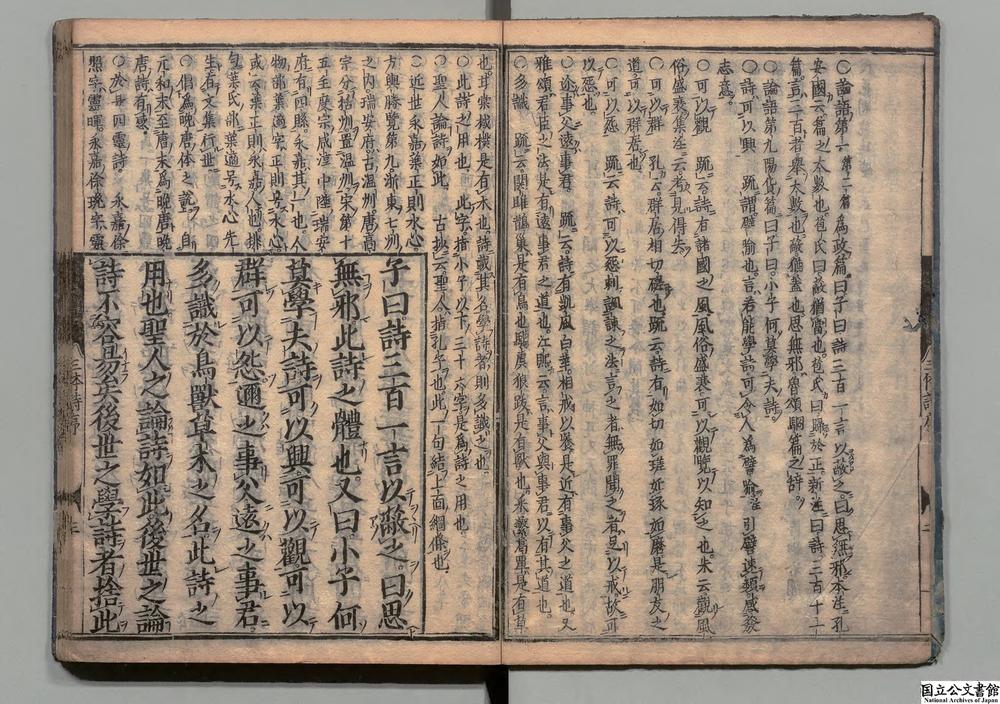 ○論語第一 第二篇 爲政篇曰子曰詩三百一言以蔽之曰思無邪本注孔
安國云篇之大數也苞氏曰蔽猶當也苞氏曰歸於正新注曰詩三百十一
篇言三百者舉大數也蔽猶蓋也思無邪魯頌駉篇之辞
○論語第九陽貨篇曰子曰小子何莫學夫詩
○詩可以興 疏謂譬喻也言若能學詩可令人爲譬喻注引譬連類感發
志意
○可以觀 疏云詩有諸國之風風俗盛衰可以觀覽以知之也朱云觀風
俗盛衰集注云考見得失
○可以群 孔云群居相切磋也疏云詩有如切如瑳如琢如磨是朋友之
道可以群者也
○可以怨 疏云詩可以怨刺諷諫之法言之者無罪聞之者足以戒故可
以怨也
○迩事父遠事君 疏云詩有凱風白華相戒以養是近有事父之道也又
雅頌君臣之法是有遠事君之道也江熙云言事父與事君以有其道也
○多識 疏云関雎鵲巣是有鳥也騶虞狼跋是有獸也采蘩葛覃是有草
也甘棠棫樸是有木也詩載其名學詩者則多識之也
○此詩之用也 此字指小子以下三十六字是爲詩之用也
○聖人論詩如此 古抄云聖人指孔子也此一句結上面綱條也
○近世永嘉葉正則水心
方輿勝覽第九浙東七洲
之内瑞安府古温洲唐高
宗分栝洲置温洲宋第十
五主度宗咸淳中陞瑞安
府有四縣永嘉其一也人
物部葉適字正則号水心
或云葉正則永嘉人也排
句葉氏部葉適号水心先
生有文集行世
○倡爲晩唐体之說 自
元和末至唐末爲晩唐晩
唐詩有變
○於四靈詩 永嘉徐
照字靈暉永嘉徐璣字靈
子曰詩三百一言以蔽之曰思
無邪此詩之體也又曰小子何
莫學夫詩可以興可以觀可以
群可以怨邇之事父遠之事君
多識於鳥獸草木之名此詩之
用也聖人之論詩如此後世之論
詩不容易矣後世之學詩者捨此
三体詩序
二
国立公文書館
National Archives of Japan